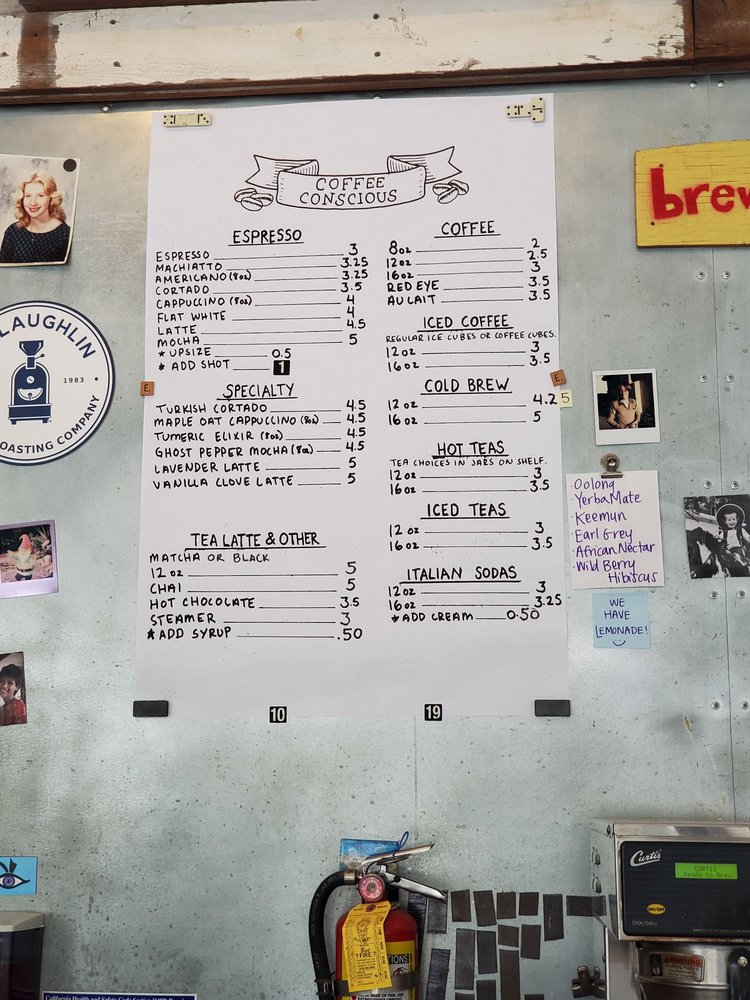 COFFEE
CONSCIOUS
ESPRESSO
ESPRESSO 3
MACHIATTO 3.25
AMERICANO (8oz) 3.25
CORTADO 3.5
CAPPUCCINO (8oz) 4
FLAT WHITE 4
LATTE 4.5
MOCHA 5
* UPSIZE 0.5
* ADD SHOT 1
SPECIALTY
TURKISH CORTADO 4.5
MAPLE OAT CAPPUCCINO (8oz) 4.5
TUMERIC ELIXIR (8oz) 4.5
GHOST PEPPER MOCHA (8oz) 4.5
LAVENDER LATTE 5
VANILLA CLOVE LATTE 5
TEA LATTE & OTHER
MATCHA OR BLACK
12 oz 5
CHAI 5
HOT CHOCOLATE 3.5
STEAMER 3
* ADD SYRUP .50
COFFEE
8oz 2
12oz 2.5
16oz 3
RED EYE 3.5
AU LAIT 3.5
ICED COFFEE
REGULAR ICE CUBES OR COFFEE CUBES.
12oz 3
16oz 3.5
COLD BREW
12oz 4.25
16oz 5
HOT TEAS
TEA CHOICES IN JARS ON SHELF.
12oz 3
16oz 3.5
ICED TEAS
12 oz 3
16oz 3.5
ITALIAN SODAS
12oz 3
16oz 3.25
* ADD CREAM 0.50
E.
E.
10
19
LAUGHLIN
1983
OASTING COMPANY
brew
· Oolong
· Yerba Mate
· Keemun
· Earl Grey
· African Nectar
· Wild Berry
Hibiscus
WE
HAVE
LEMONADE!
Curtis
CURTIS
Ready to Brew
ON/OFF
WARNING
FIRE
IONS
California Health and Safety Code Section